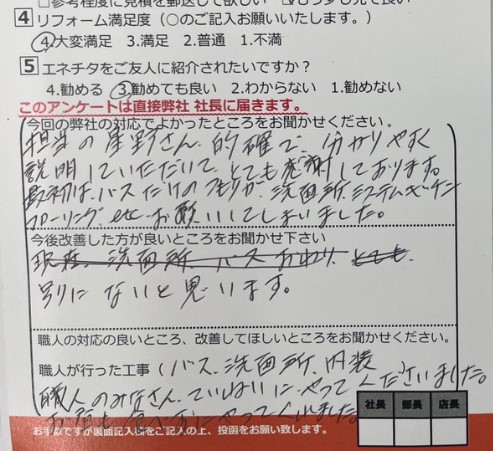 □参考程度に見積を郵送して欲しい □もう少し先で良い
4 リフォーム満足度（○のご記入お願いいたします。）
4.大変満足 3.満足 2.普通 1.不満
5 エネチタをご友人に紹介されたいですか？
4.勧める 3.勧めても良い 2.わからない 1.勧めない
このアンケートは直接弊社 社長に届きます。
今回の弊社の対応でよかったところをお聞かせください。
担当の星野さん、的確で、分かりやすく
説明していただいて、とても感謝しております。
最初は、バスだけのつもりが、洗面所、システムキッチン
フローリング、etc お願いしてしまいました。
今後改善した方が良いところをお聞かせ下さい
現在、洗面所 バス おわり、とても、
別にないと思います。
職人の対応の良いところ、改善してほしいところをお聞かせください。
職人が行った工事（バス、洗面所、内装
職人のみなさん、ていねいにやってくださいました。
にやってくれました
社長 部長 店長
お手数ですが裏面記入欄をご記入の上、投函をお願い致します。